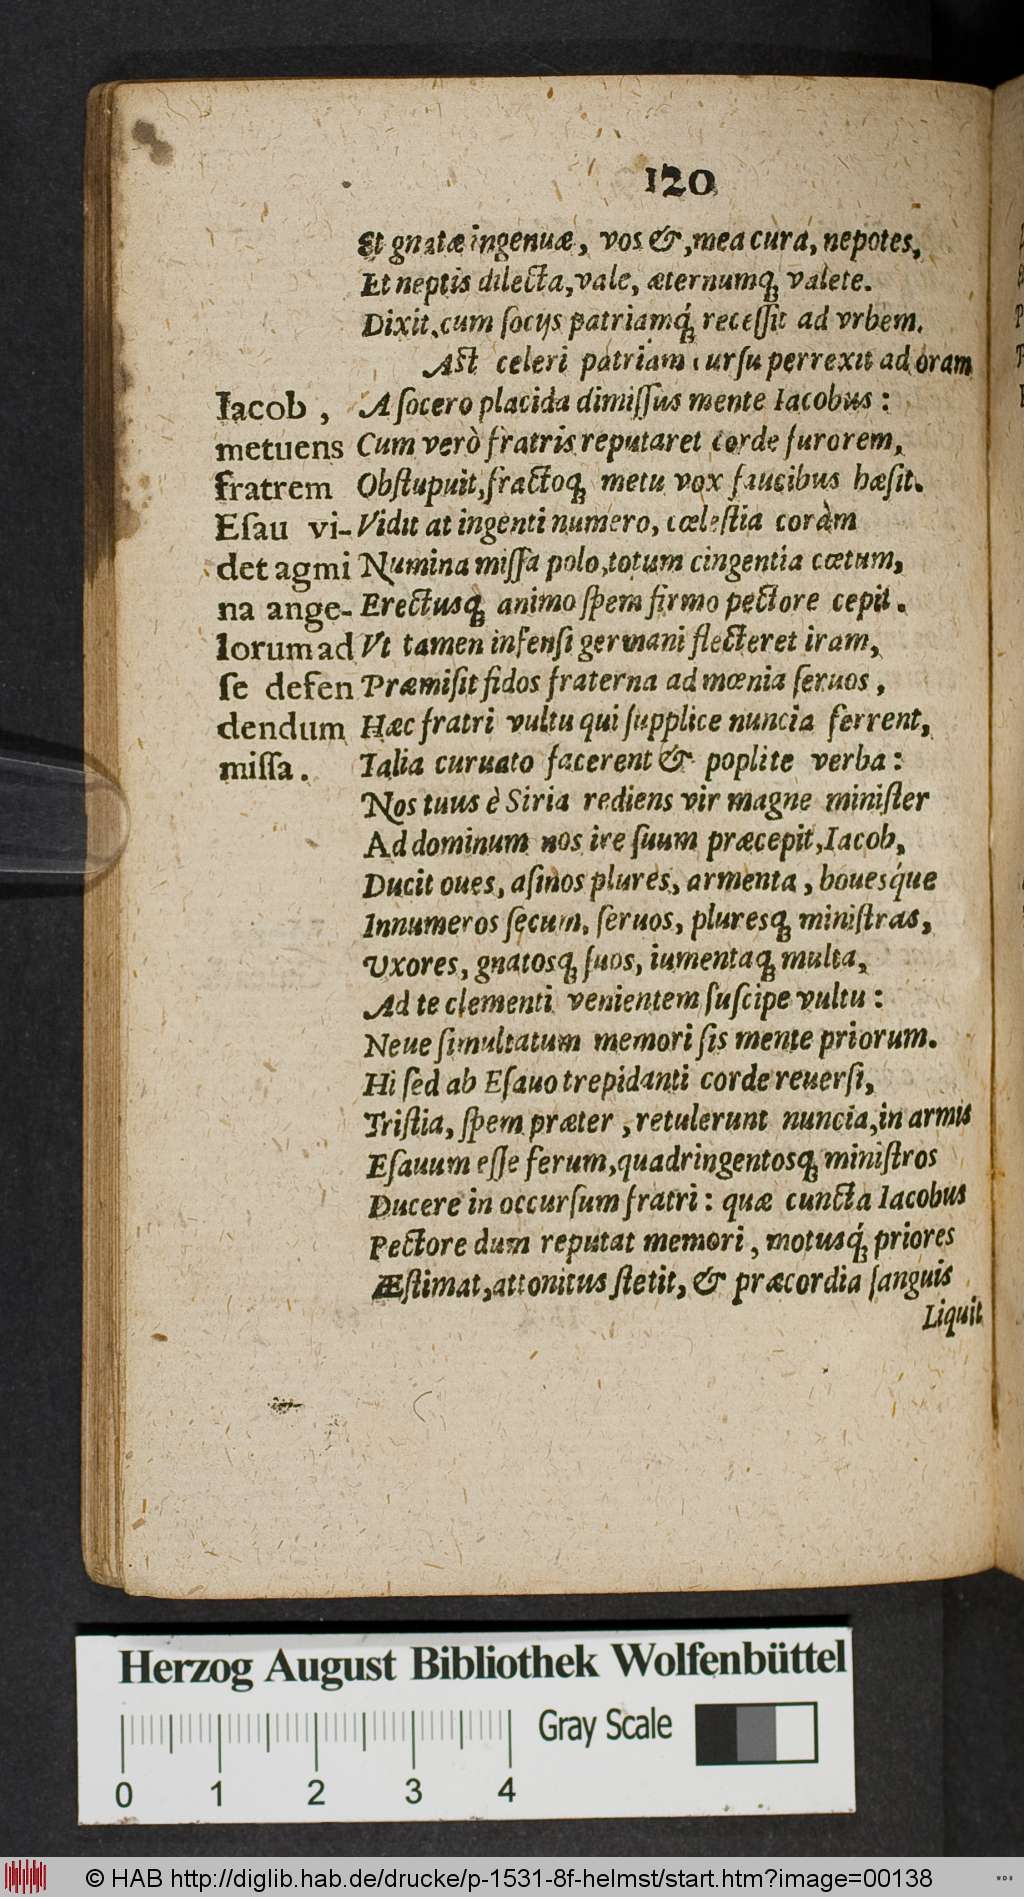 120
Et gnatæ ingenuæ, vos &, mea cura, nepotes,
Et neptis dilecta, vale, æternumq́ue valete.
Dixit, cum socijs patriamq́ue recessit ad vrbem.
Ast celeri patriam cursu perrexit ad oram
A socero placida dimissus mente Iacobus:
Cum verò fratris reputaret corde furorem,
Obstupuit, fractoq́ue metu vox faucibus hæsit.
Vidit at ingenti numero, cœlestia coràm
Numina missa polo, totum cingentia cœtum,
Erectusq́ue animo spem firmo pectore cepit.
Vt tamen infensi germani flecteret iram,
Præmisit fidos fraterna ad mœnia seruos,
Hæc fratri vultu qui supplice nuncia ferrent,
Talia curuato facerent & poplite verba:
Nos tuus è Siria rediens vir magne minister
Ad dominum nos ire suum præcepit, Iacob,
Ducit oues, asinos plures, armenta, bouesq́ue
Innumeros secum, seruos, pluresq́ue ministras,
Vxores, gnatosq́ue suos, iumentaq́ue multa,
Ad te clementi venientem suscipe vultu:
Neue simultatum memori sis mente priorum.
Hi sed ab Esauo trepidanti corde reuersi,
Tristia, spem præter, retulerunt nuncia, in armis
Esauum esse ferum, quadringentosq́ue ministros
Ducere in occursum fratri: quæ cuncta Iacobus
Pectore dum reputat memori, motusq́ue priores
Æstimat, attonitus stetit, & præcordia sanguis
Liquit
Iacob,
metuens
fratrem
Esau vi-
det agmi
na ange-
lorum ad
se defen
dendum
missa.
Herzog August Bibliothek Wolfenbüttel
Gray Scale
0 1 2 3 4
© HAB http://diglib.hab.de/drucke/p-1531-8f-helmst/start.htm?image=00138